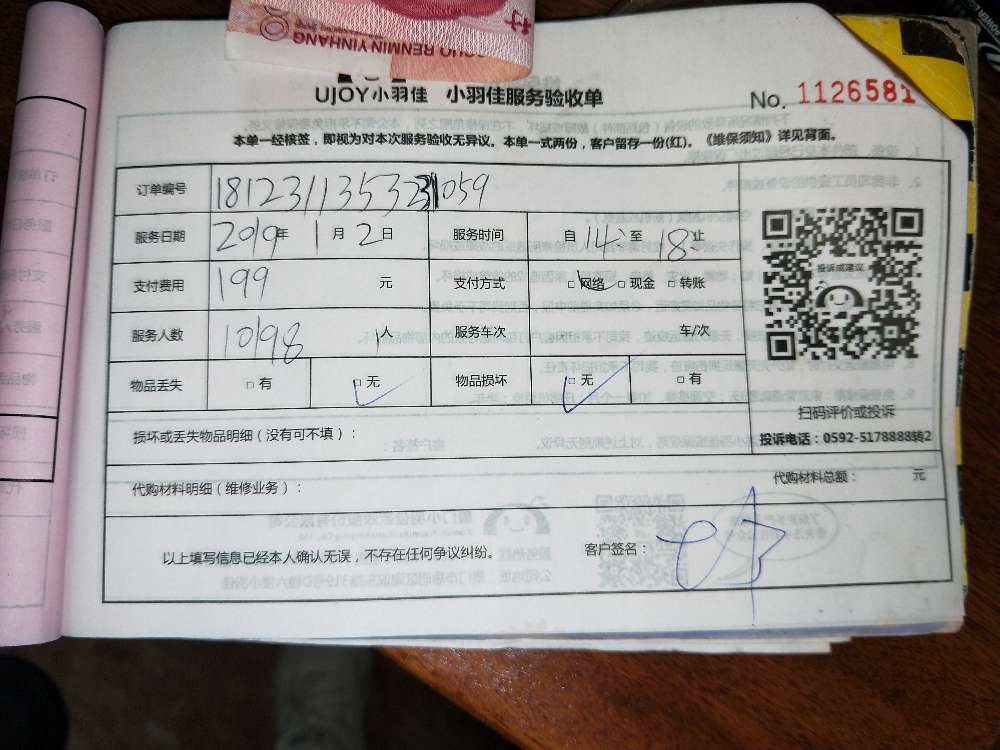 GUO RENMIN YINHANG
UJOY小羽佳 小羽佳服务验收单
No. 1126581
本单一经核签，即视为对本次服务验收无异议。本单一式两份，客户留存一份(红)。《维保须知》详见背面。
订单编号 181231135323059
服务日期 2019年1月2日 服务时间 自14:至18:止
支付费用 199 元 支付方式 □网络 □现金 □转账
服务人数 1098 1人 服务车次 车/次
物品丢失 □有 □无 物品损坏 □无 □有
投诉或建议
扫码评价或投诉
投诉电话：0592-5178888转2
损坏或丢失物品明细（没有可不填）：
代购材料明细（维修业务）： 代购材料总额： 元
以上填写信息已经本人确认无误，不存在任何争议纠纷。 客户签名：